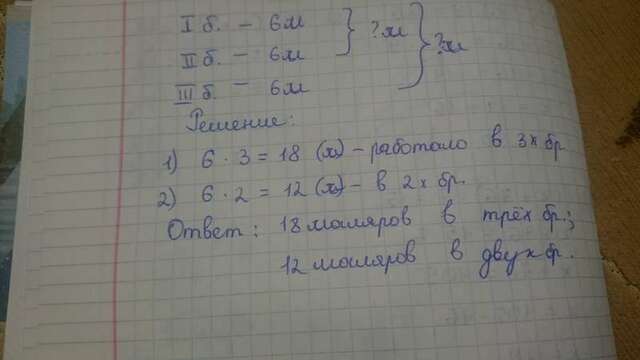 I б. – 6 м
II б. – 6 м } ? м } ? м
III б. – 6 м
Решение:
1) 6 · 3 = 18 (м) – работало в 3х бр
2) 6 · 2 = 12 (м) – в 2х бр.
Ответ: 18 маляров в трёх бр;
12 маляров в двух бр.